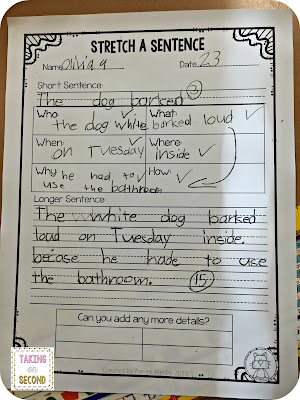 STRETCH A SENTENCE
Name Olivia g Date 23
Short Sentence:
The dog barked. 3
Who ✓ What ✓
the dog white barked loud
When ✓ Where ✓
on Tuesday inside
Why he had to ✓ How ✓
use the bathroom
Longer Sentence:
The white dog barked
loud on Tuesday inside.
becose he hade to use
the bathroom. 15
Can you add any more details?
TAKING
on
SECOND